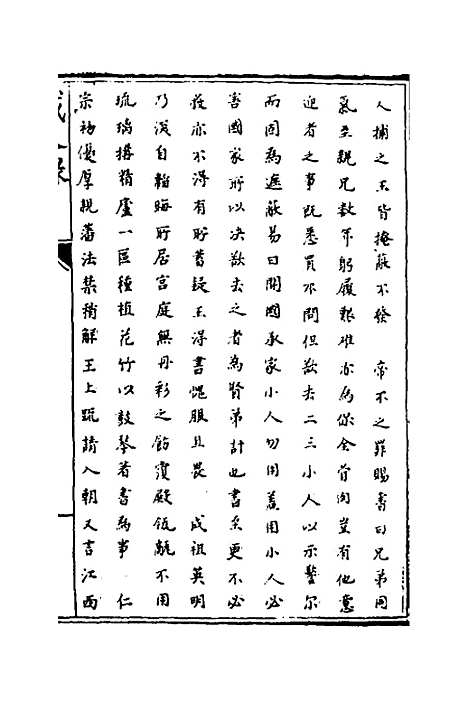 人捕之王皆掩蔽不發　帝不之罪賜書曰兄弟同
氣至親兄數年躬履艱難亦為保全骨肉豈有他意
迎者之事既悉置不問但欲去二三小人以示警爾
而固為遮蔽易曰開國承家小人勿用蓋用小人必
害國家所以決欲去之者為賢弟計也書至更不必
疑亦不得有所蓄疑王得書愧服且畏　成祖英明
乃深自韜晦所居宮庭無丹彩之飾覆殿瓴甋不用
琉璃搆精廬一區種植花竹以鼓琴著書為事　仁
宗初優厚親藩法禁稍解王上疏請入朝又言江西